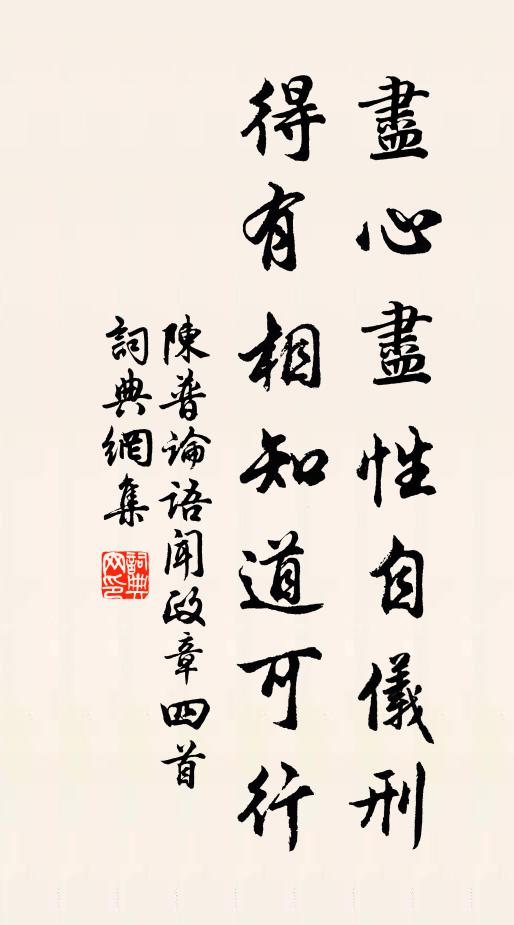 盡心盡性自儀刑
得有相知道可行
陳普論語聞政章四首
詞典網集
詞典
网印